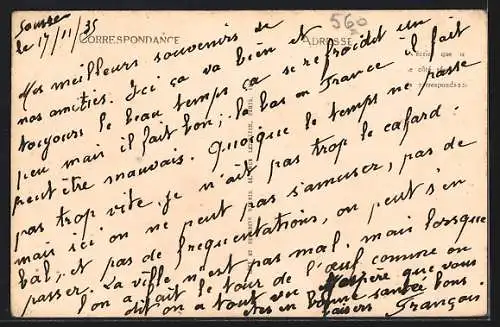 Sousse
le 17/11/35
560
CORRESPONDANCE
ADRESSE
Mes meilleurs souvenirs de
nos amitiés. Ici ça va bien et
toujours le beau temps ça se refroidit un
peu mais il fait bon; là bas en France il fait
peut être mauvais. Quoique le temps ne passe
pas trop vite je n'ait pas trop le cafard.
mais ici on ne peut pas s'amuser, pas de
bal, et pas de frequentations, on peut s'en
passer. La ville n'est pas mal. mais lorsque
l'on a fait le tour de l'œuf comme on
dit on a tout vu. J'espère que vous
êtes en bonne santé bons
baisers François